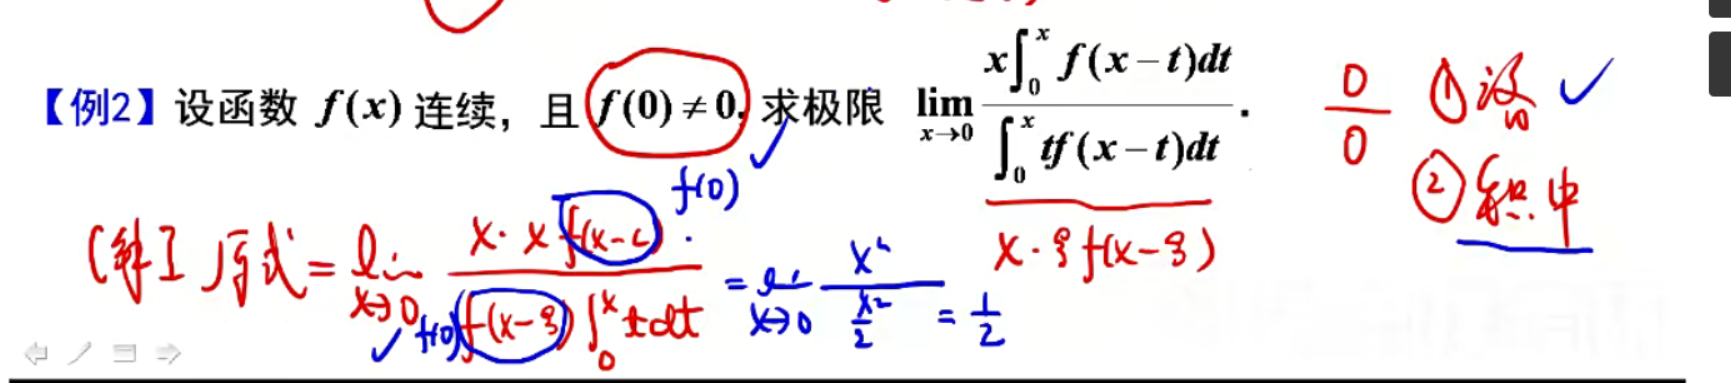 【例2】设函数 f(x) 连续，且 f(0) ≠ 0, 求极限 lim_{x→0} \frac{x∫_0^x f(x−t)dt}{∫_0^x tf(x−t)dt}.
\frac{0}{0} ① 
② 积中
f(0)
x·ξf(x−ξ)
[解] 原式 = lim_{x→0} \frac{x·x f(x−c)}{f(x−ξ)∫_0^x tdt} = lim_{x→0} \frac{x²}{\frac{x²}{2}} = \frac{1}{2}
f(0)